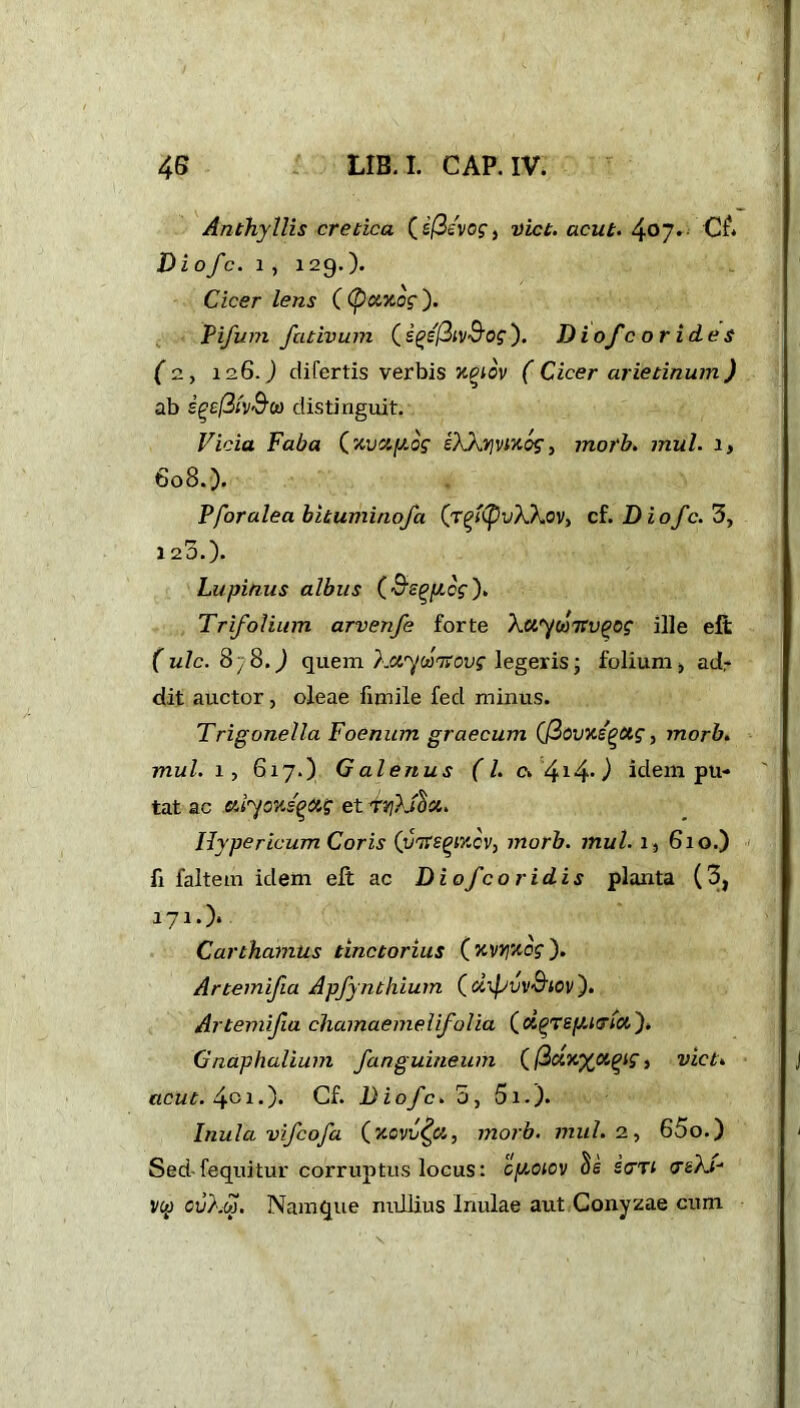 46 LIB. I. CAP. IV.
Anthyllis cretica (ἐβένος, vict. acut. 407. Cf.
Diosc. 1, 129.).
Cicer lens (φακὸς).
Pisum sativum (ἐρέβινθος). Dioscorides
(2, 126.) disertis verbis κριὸν (Cicer arietinum)
ab ἐρεβίνθω distinguit.
Vicia Faba (κυαμὸς ἑλληνικός, morb. mul. 1,
608.).
Psoralea bituminosa (τρίφυλλον, cf. Diosc. 3,
123.).
Lupinus albus (θερμὸς).
Trifolium arvense forte λαγώπυρος ille est
(ulc. 878.) quem λαγώπους legeris; folium, ad-
dit auctor, oleae simile sed minus.
Trigonella Foenum graecum (βουκέρας, morb.
mul. 1, 617.) Galenus (l. c. 414.) idem pu-
tat ac αἰγοκέρας et τηλίδα.
Hypericum Coris (ὑπερικὸν, morb. mul. 1, 610.)
si saltem idem est ac Dioscoridis planta (3,
171.).
Carthamus tinctorius (κνηκὸς).
Artemisia Apsynthium (ἀψύνθιον).
Artemisia chamaemelifolia (ἀρτεμισία).
Gnaphalium sanguineum (βάκχαρις, vict.
acut. 401.). Cf. Diosc. 3, 51.).
Inula viscosa (κονύζα, morb. mul. 2, 650.)
Sed sequitur corruptus locus: ὅμοιον δέ ἐστι σελί-
νῳ οὐλῷ. Namque nullius Inulae aut Conyzae cum